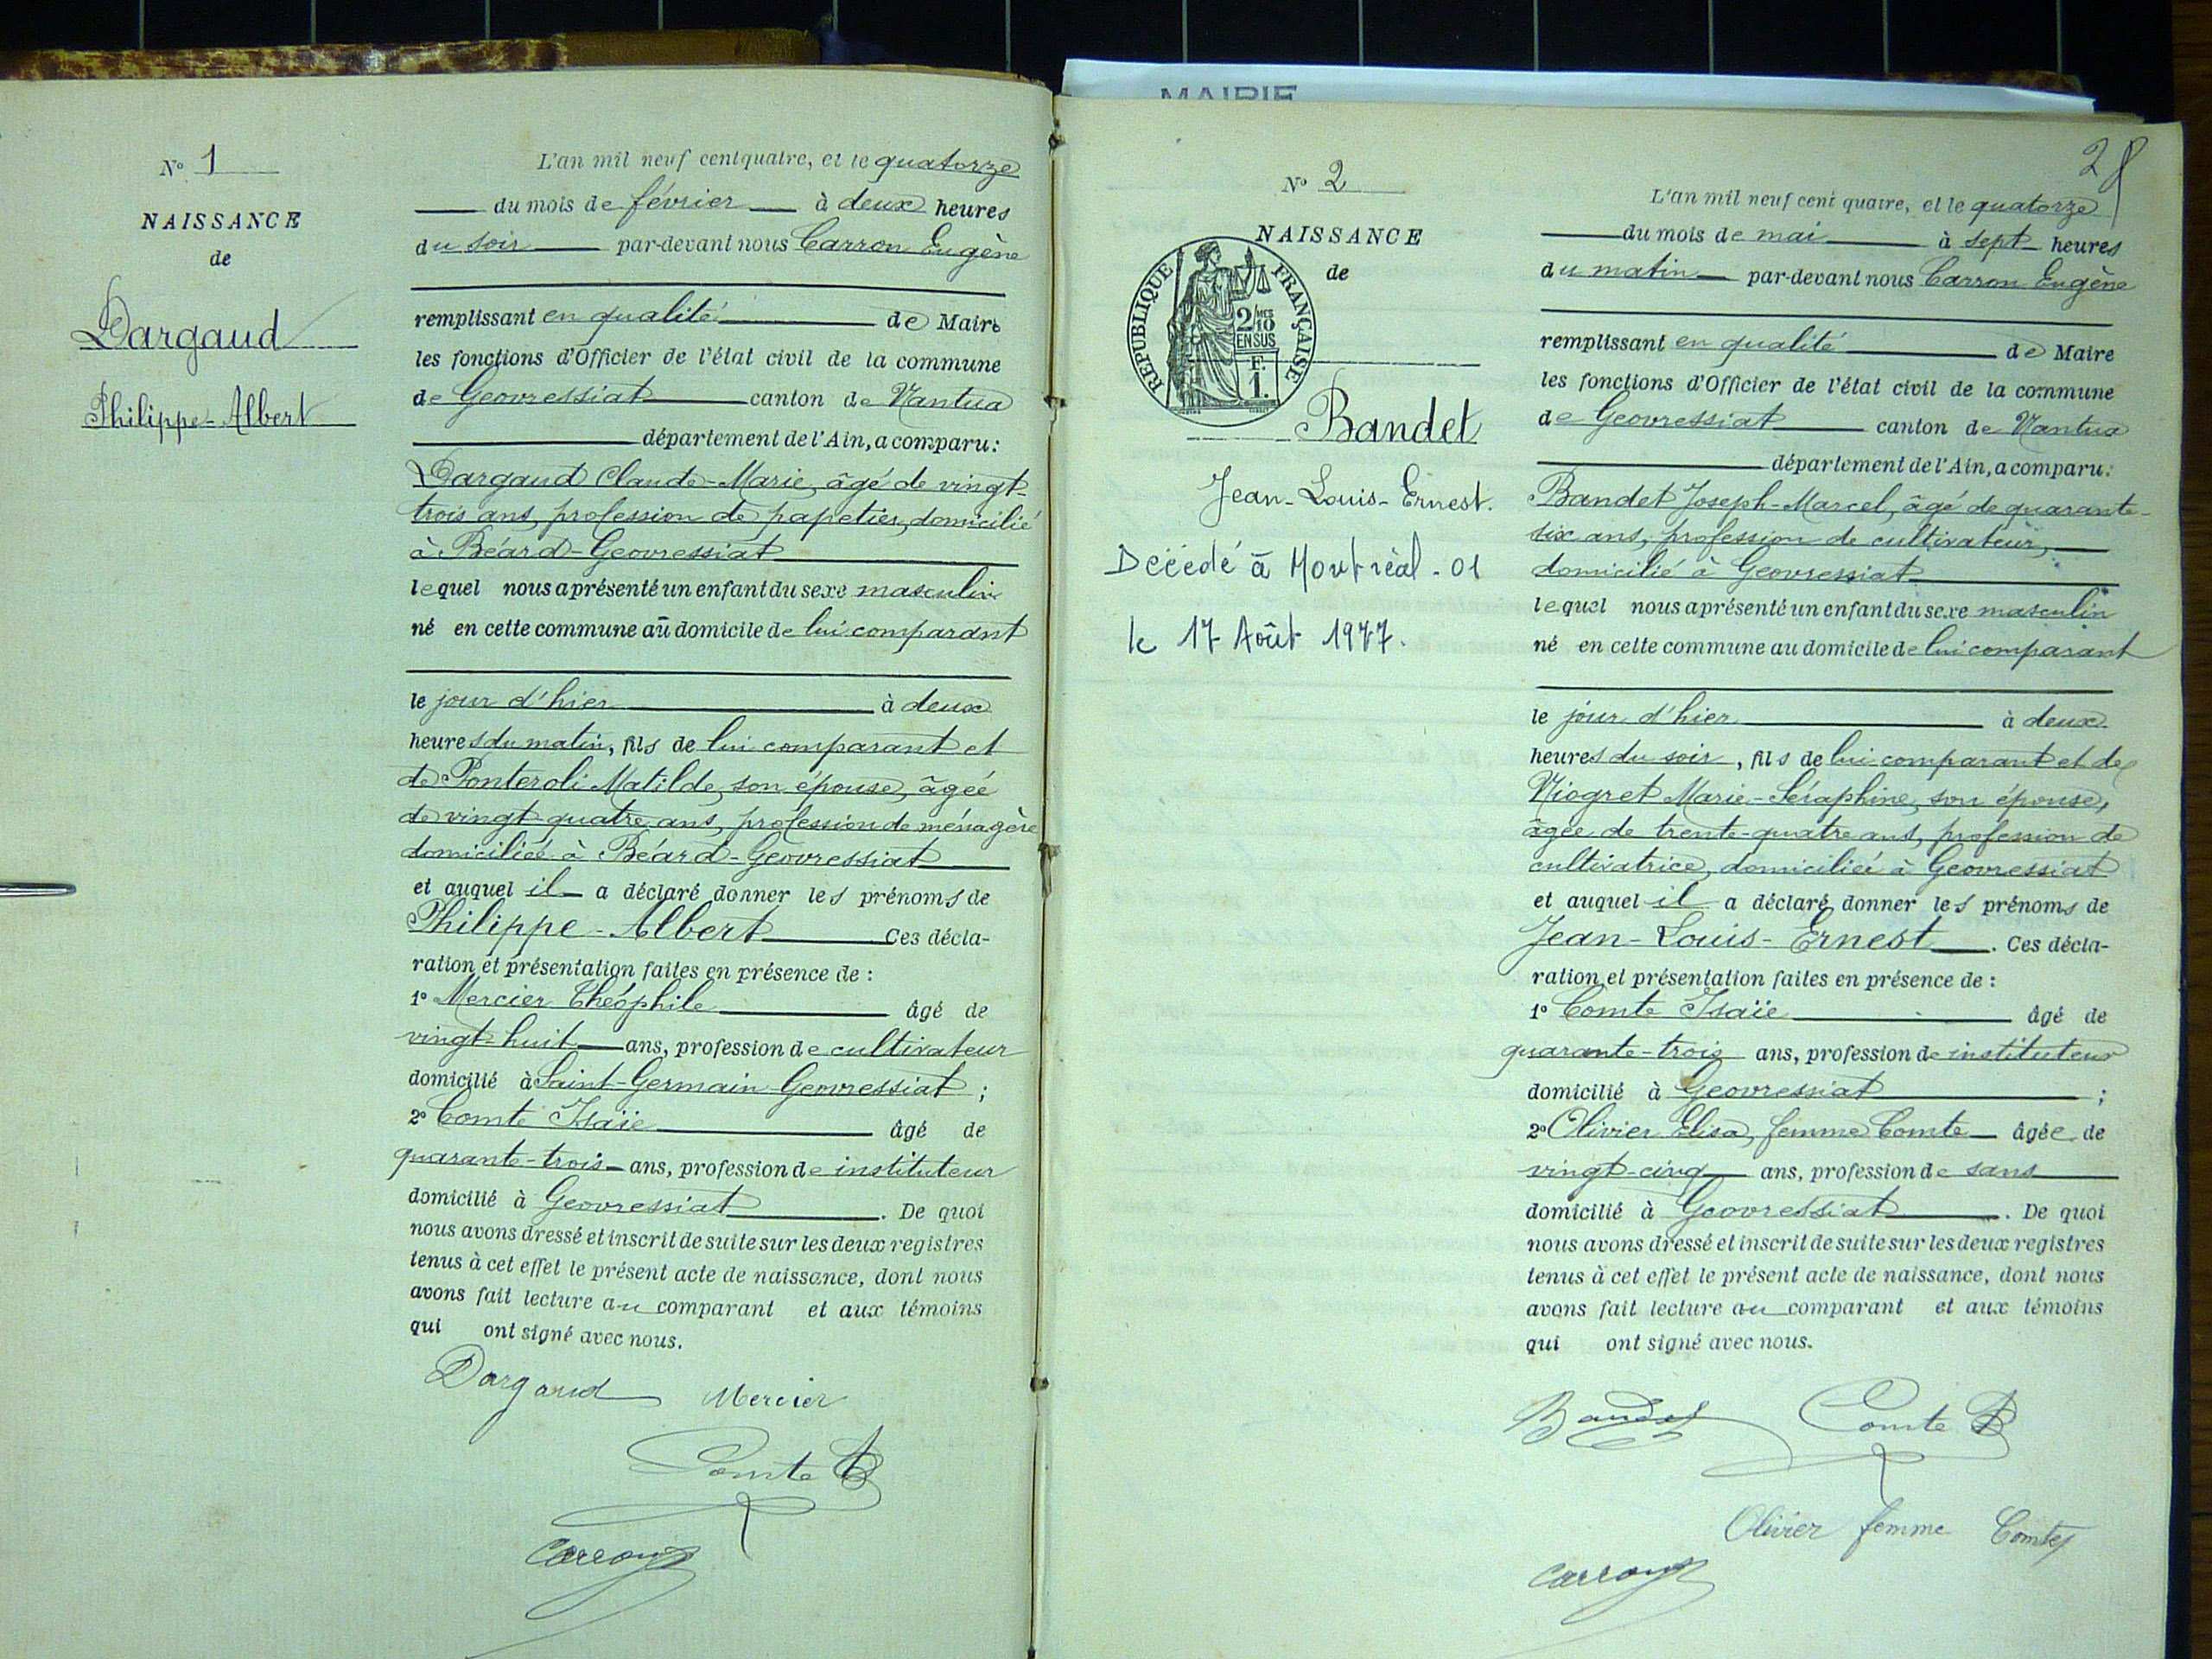 N° 1
NAISSANCE
de
Dargaud
Philippe-Albert
L'an mil neuf cent quatre, et le quatorze
du mois de février à deux heures
du soir par-devant nous Carron Eugène
remplissant en qualité de Maire
les fonctions d'Officier de l'état civil de la commune
de Geovressiat canton de Nantua
département de l'Ain, a comparu:
Dargaud Claude-Marie, âgé de vingt-
trois ans, profession de papetier, domicilié
à Béard-Geovressiat
lequel nous a présenté un enfant du sexe masculin
né en cette commune au domicile de lui comparant
le jour d'hier à deux
heures du matin, fils de lui comparant et
de Ponteroli Matilde, son épouse, âgée
de vingt quatre ans, profession de ménagère
domiciliée à Béard-Geovressiat
et auquel il a déclaré donner les prénoms de
Philippe-Albert Ces décla-
ration et présentation faites en présence de :
1° Mercier Théophile âgé de
vingt-huit ans, profession de cultivateur
domicilié à Saint-Germain-Geovressiat ;
2° Comte Isaïe âgé de
quarante-trois ans, profession de instituteur
domicilié à Geovressiat. De quoi
nous avons dressé et inscrit de suite sur les deux registres
tenus à cet effet le présent acte de naissance, dont nous
avons fait lecture au comparant et aux témoins
qui ont signé avec nous.
Dargaud Mercier
Comte
Carron
MAIRIE
28
N° 2
NAISSANCE
de
REPUBLIQUE FRANÇAISE
2/10
EN SUS
F.
1.
Bandet
Jean-Louis-Ernest.
Décédé à Montréal-01
le 17 Août 1977.
L'an mil neuf cent quatre, et le quatorze
du mois de mai à sept heures
du matin par-devant nous Carron Eugène
remplissant en qualité de Maire
les fonctions d'Officier de l'état civil de la commune
de Geovressiat canton de Nantua
département de l'Ain, a comparu:
Bandet Joseph-Marcel, âgé de quarante-
six ans, profession de cultivateur,
domicilié à Geovressiat
lequel nous a présenté un enfant du sexe masculin
né en cette commune au domicile de lui comparant
le jour d'hier à deux
heures du soir, fils de lui comparant et de
Niogret Marie-Séraphine, son épouse,
âgée de trente-quatre ans, profession de
cultivatrice, domiciliée à Geovressiat
et auquel il a déclaré donner les prénoms de
Jean-Louis-Ernest. Ces décla-
ration et présentation faites en présence de :
1° Comte Isaïe âgé de
quarante-trois ans, profession de instituteur
domicilié à Geovressiat ;
2° Olivier Elisa, femme Comte âgée de
vingt-cinq ans, profession de sans
domicilié à Geovressiat. De quoi
nous avons dressé et inscrit de suite sur les deux registres
tenus à cet effet le présent acte de naissance, dont nous
avons fait lecture au comparant et aux témoins
qui ont signé avec nous.
Bandet Comte
Olivier femme Comte
Carron